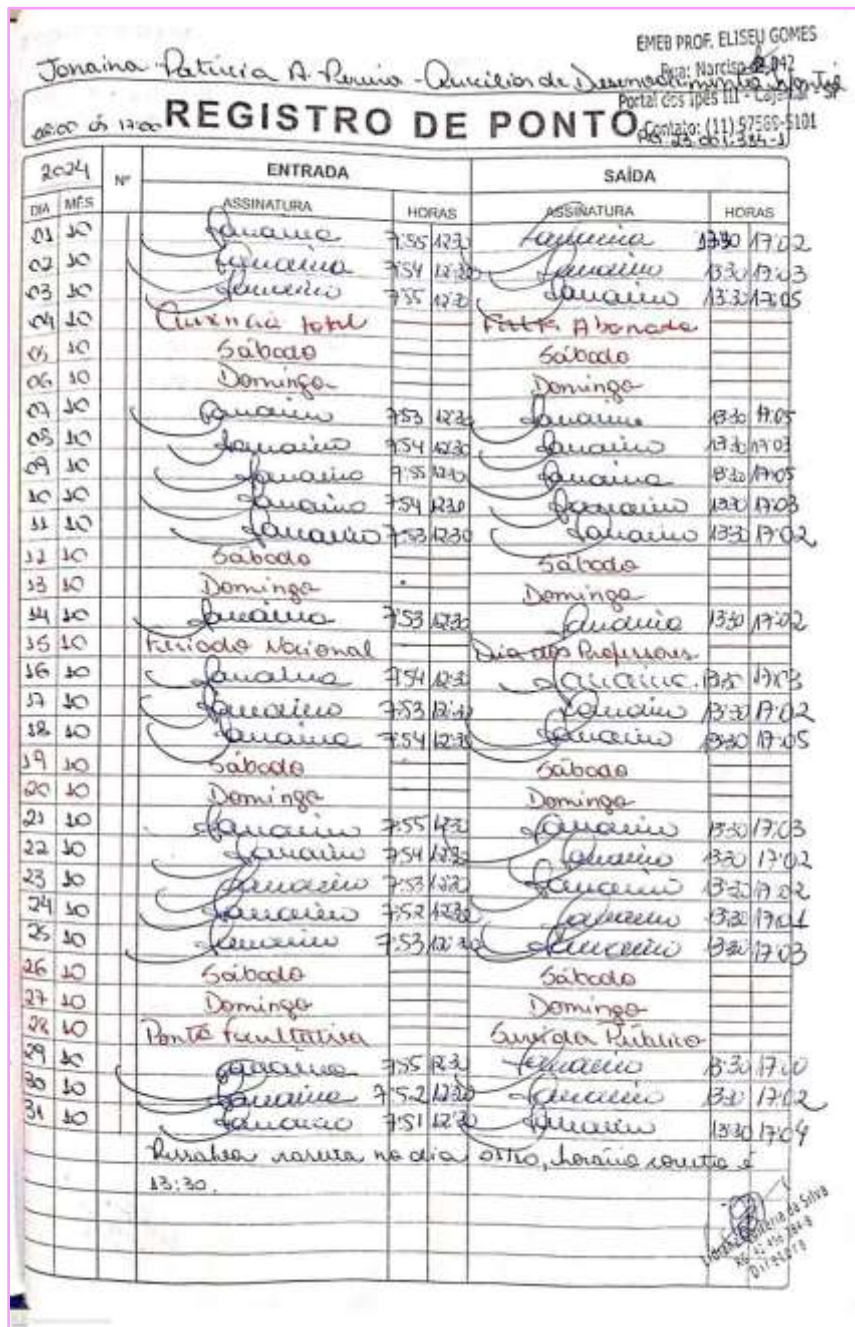 EMEB PROF. ELISEU GOMES
Janaina Patricia A. - Auxiliar de Desenvolvimento Infantil
Rua: Narciso
Portal dos Ipês III - Cajamar - SP
08:00 ás 17:00 REGISTRO DE PONTO
Contato: (11) 97569-5101
2024 Nº ENTRADA SAÍDA
DIA MÊS ASSINATURA HORAS ASSINATURA HORAS
01 10 Janaina 7:55 12:30 Janaina 13:30 17:02
02 10 Janaina 7:54 12:30 Janaina 13:30 17:03
03 10 Janaina 7:55 12:30 Janaina 13:30 17:05
04 10 Ausência total Falta Abonada
05 10 Sábado Sábado
06 10 Domingo Domingo
07 10 Janaina 7:53 12:30 Janaina 13:30 17:05
08 10 Janaina 7:54 12:30 Janaina 13:30 17:03
09 10 Janaina 7:55 12:30 Janaina 13:30 17:05
10 10 Janaina 7:54 12:30 Janaina 13:30 17:03
11 10 Janaina 7:53 12:30 Janaina 13:30 17:02
12 10 Sábado Sábado
13 10 Domingo Domingo
14 10 Janaina 7:53 12:30 Janaina 13:30 17:02
15 10 Feriado Nacional Dia dos Professores
16 10 Janaina 7:54 12:30 Janaina 13:30 17:03
17 10 Janaina 7:53 12:30 Janaina 13:30 17:02
18 10 Janaina 7:54 12:30 Janaina 13:30 17:05
19 10 Sábado Sábado
20 10 Domingo Domingo
21 10 Janaina 7:55 12:30 Janaina 13:30 17:03
22 10 Janaina 7:54 12:30 Janaina 13:30 17:02
23 10 Janaina 7:53 12:30 Janaina 13:30 17:02
24 10 Janaina 7:52 12:30 Janaina 13:30 17:01
25 10 Janaina 7:53 12:30 Janaina 13:30 17:03
26 10 Sábado Sábado
27 10 Domingo Domingo
28 10 Ponto Facultativo Servidor Público
29 10 Janaina 7:55 12:30 Janaina 13:30 17:00
30 10 Janaina 7:52 12:30 Janaina 13:30 17:02
31 10 Janaina 7:51 12:30 Janaina 13:30 17:04
Ressalva rasura no dia horário correto é
13:30.
da Silva
Diretora